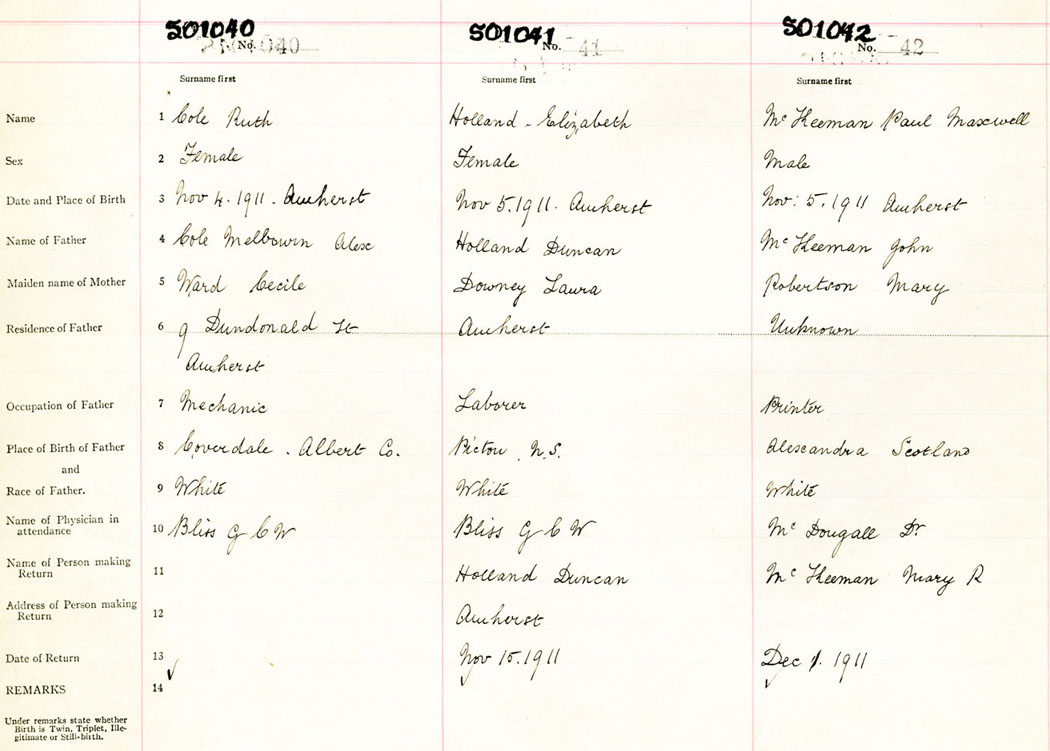 SO1040 SO1041 SO1042
No. 040 No. 41 No. 42
Surname first Surname first Surname first
Name 1 Cole Ruth Holland - Elizabeth Mc Keeman Paul Maxwell
Sex 2 Female Female Male
Date and Place of Birth 3 Nov 4. 1911. Amherst Nov 5. 1911. Amherst Nov: 5. 1911 Amherst
Name of Father 4 Cole Melbourn Alex Holland Duncan Mc Keeman John
Maiden name of Mother 5 Ward Cecile Downey Laura Robertson Mary
Residence of Father 6 9 Dundonald St Amherst Unknown
Amherst
Occupation of Father 7 Mechanic Laborer Printer
Place of Birth of Father 8 Coverdale. Albert Co. Pictou N.S. Alexandra Scotland
and
Race of Father. 9 White White White
Name of Physician in
attendance 10 Bliss G C W Bliss G C W Mc Dougall Dr
Name of Person making
Return 11 Holland Duncan Mc Keeman Mary R
Address of Person making
Return 12 Amherst
Date of Return 13 Nov 15. 1911 Dec 1. 1911
REMARKS 14
Under remarks state whether
Birth is Twin, Triplet, Ille-
gitimate or Still-birth.